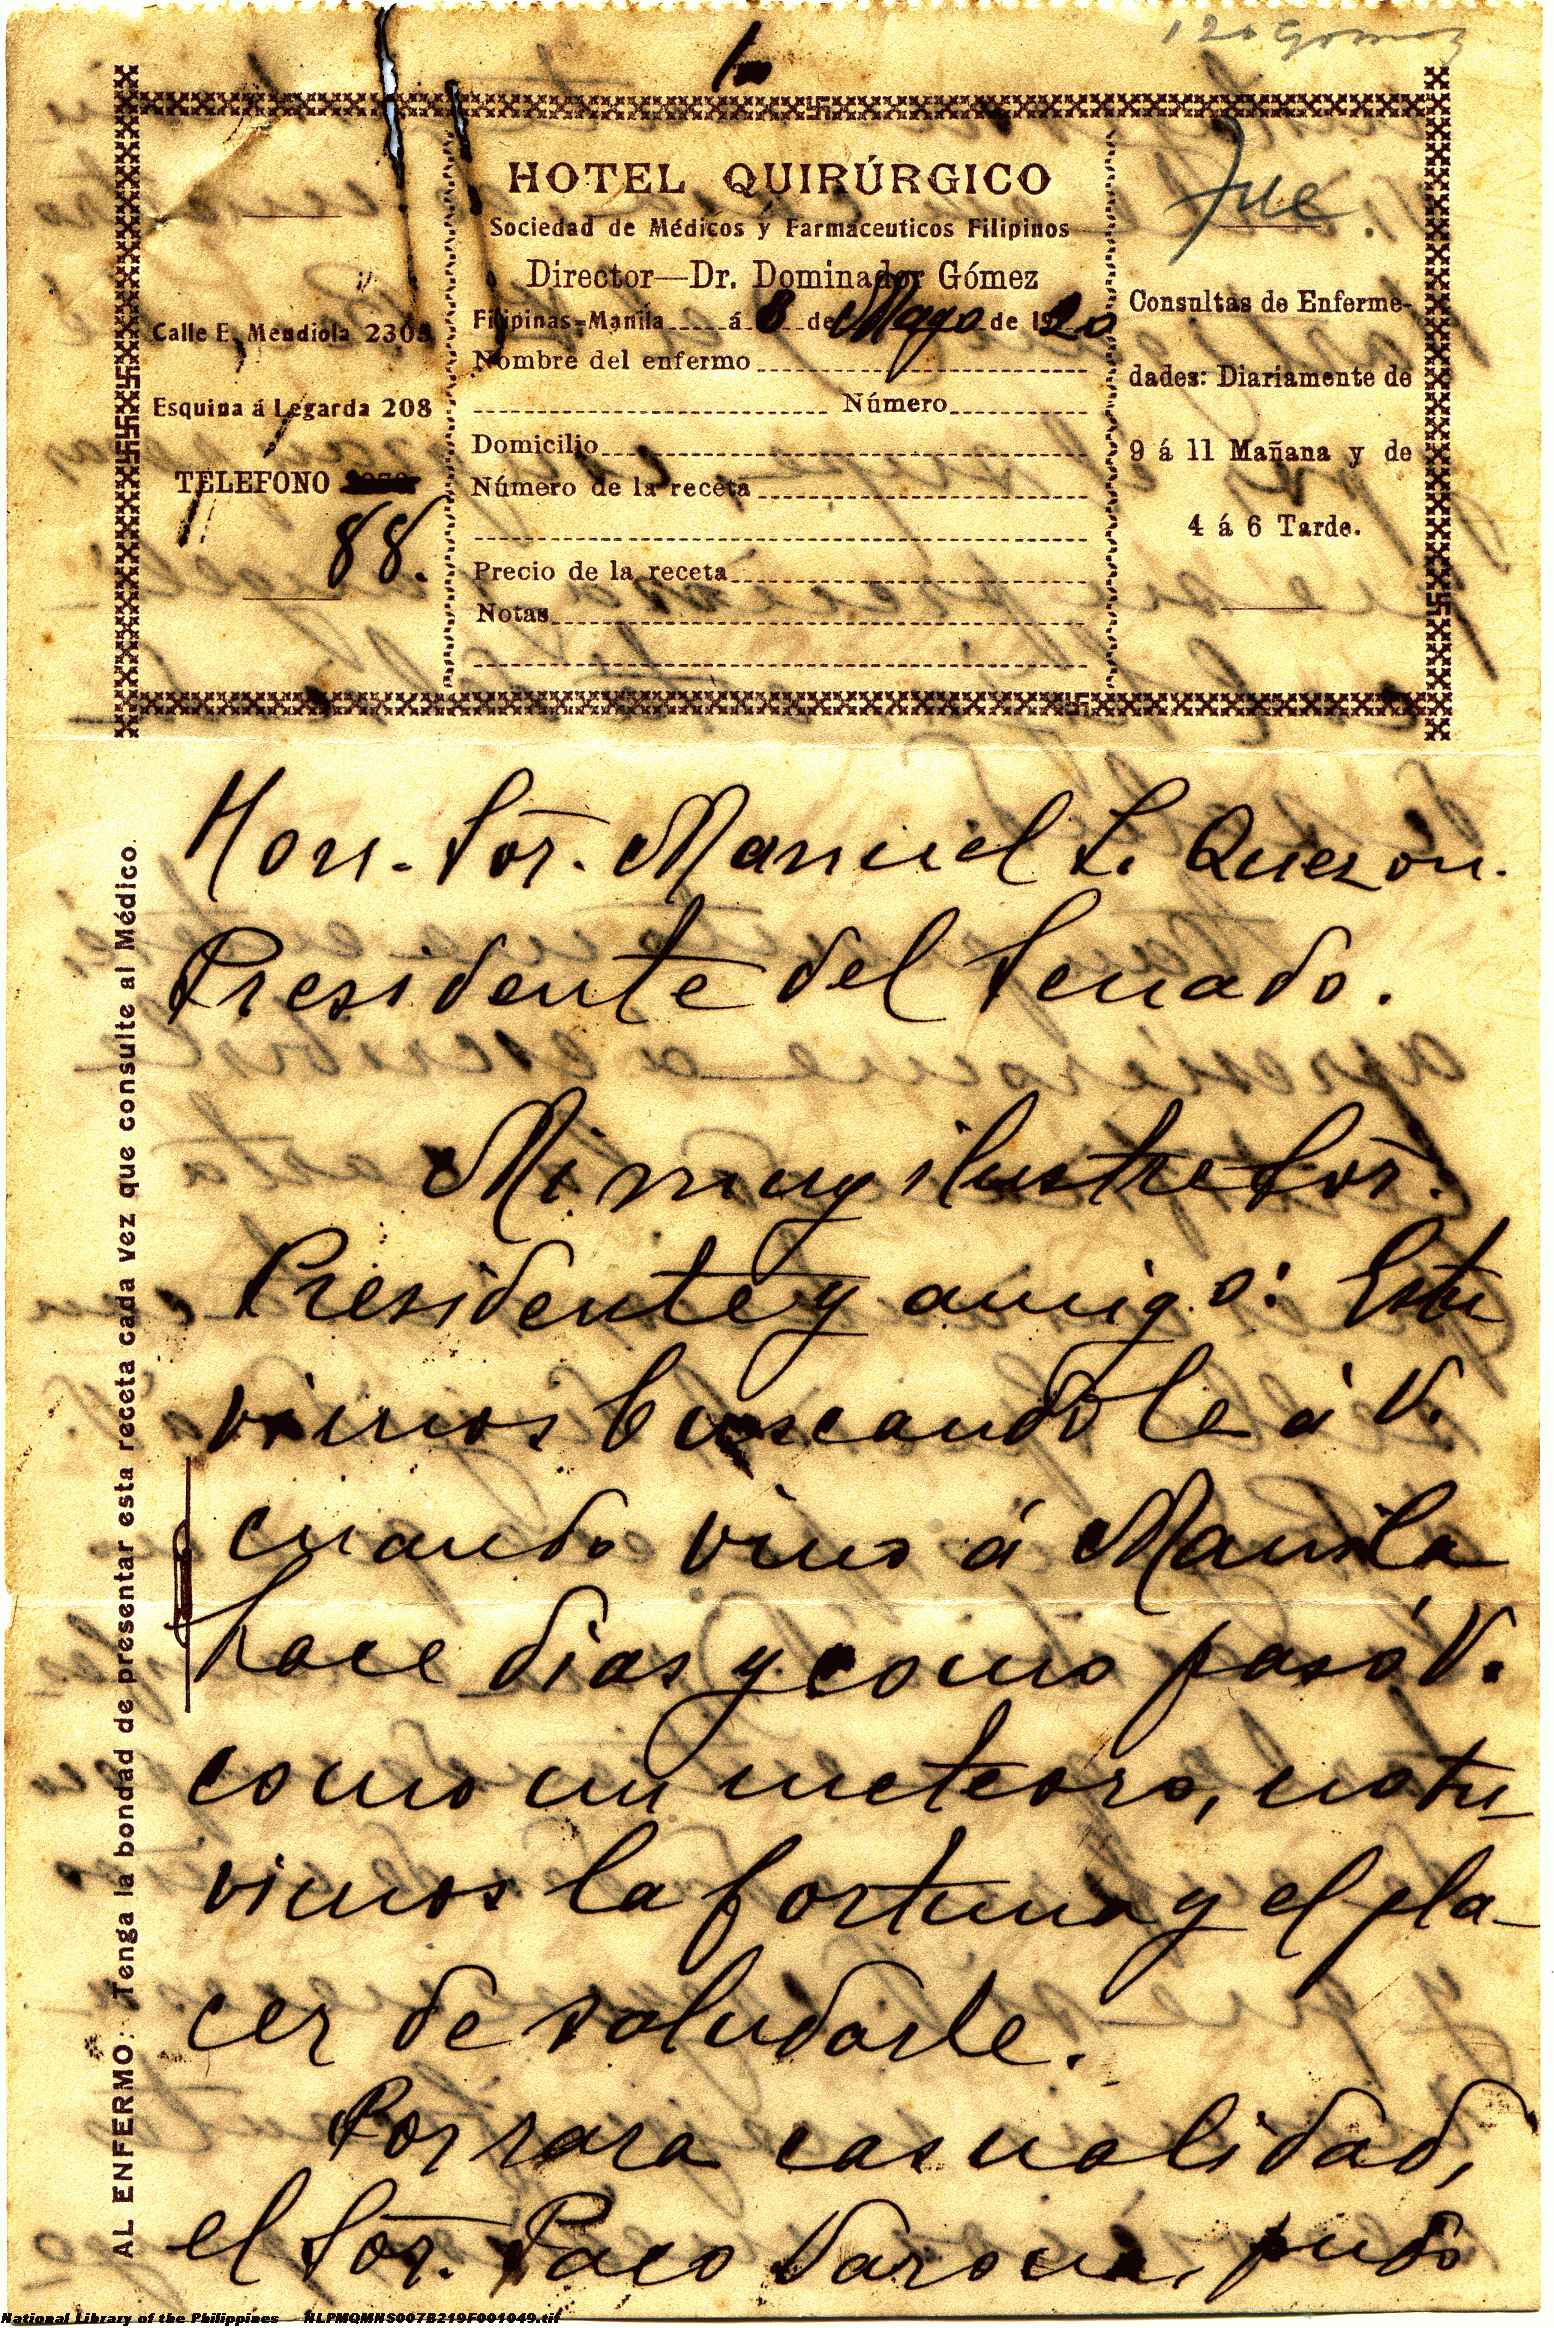 1
120 Gomez
HOTEL QUIRÚRGICO
Sociedad de Médicos y Farmaceuticos Filipinos
Director—Dr. Dominador Gómez
Filipinas=Manila á 8 de Mayo de 1920
Nombre del enfermo
Número
Domicilio
Número de la receta
Precio de la receta
Notas
Calle E. Mendiola 2305
Esquina á Legarda 208
TELEFONO
88.
Consultas de Enferme-
dades: Diariamente de
9 á 11 Mañana y de
4 á 6 Tarde.
AL ENFERMO: Tenga la bondad de presentar esta receta cada vez que consulte al Médico.
Hon. Sor. Manuel L. Quezon.
Presidente del Senado.
Mi muy ilustre Sor.
Presidente y amigo: Estu
vimos buscandole á V.
cuando vino á Manila
hace dias y como pasó V.
como un meteoro, no tu-
vimos la fortuna y el pla-
cer de saludarle.
Por rara casualidad,
el Sor. Paco Varona, pudo
National Library of the Philippines NLPMQMNS007B219F001049.tif